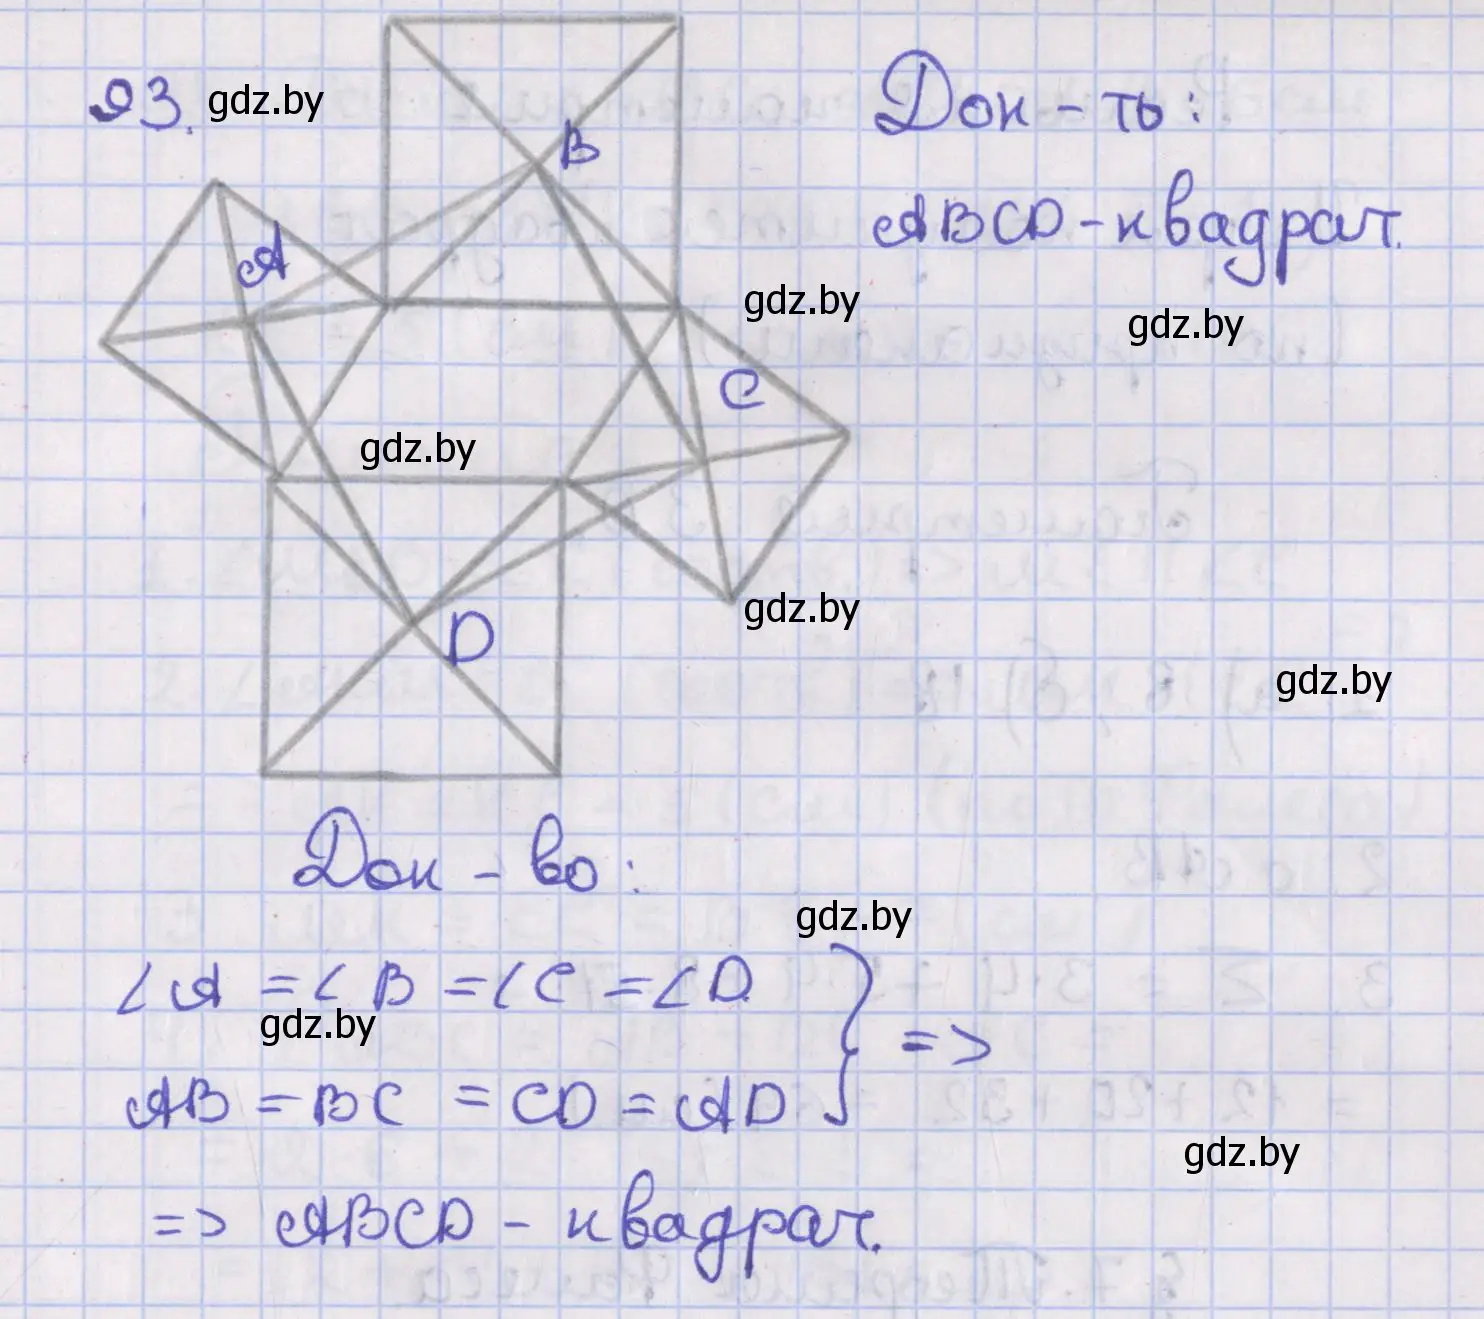 93. gdz.by
Док-ть:
ABCD - квадрат.
B
A
gdz.by
gdz.by
C
gdz.by
gdz.by
D
gdz.by
Док-во:
gdz.by
∠A = ∠B = ∠C = ∠D
gdz.by
=>
AB = BC = CD = AD
gdz.by
=> ABCD - квадрат.